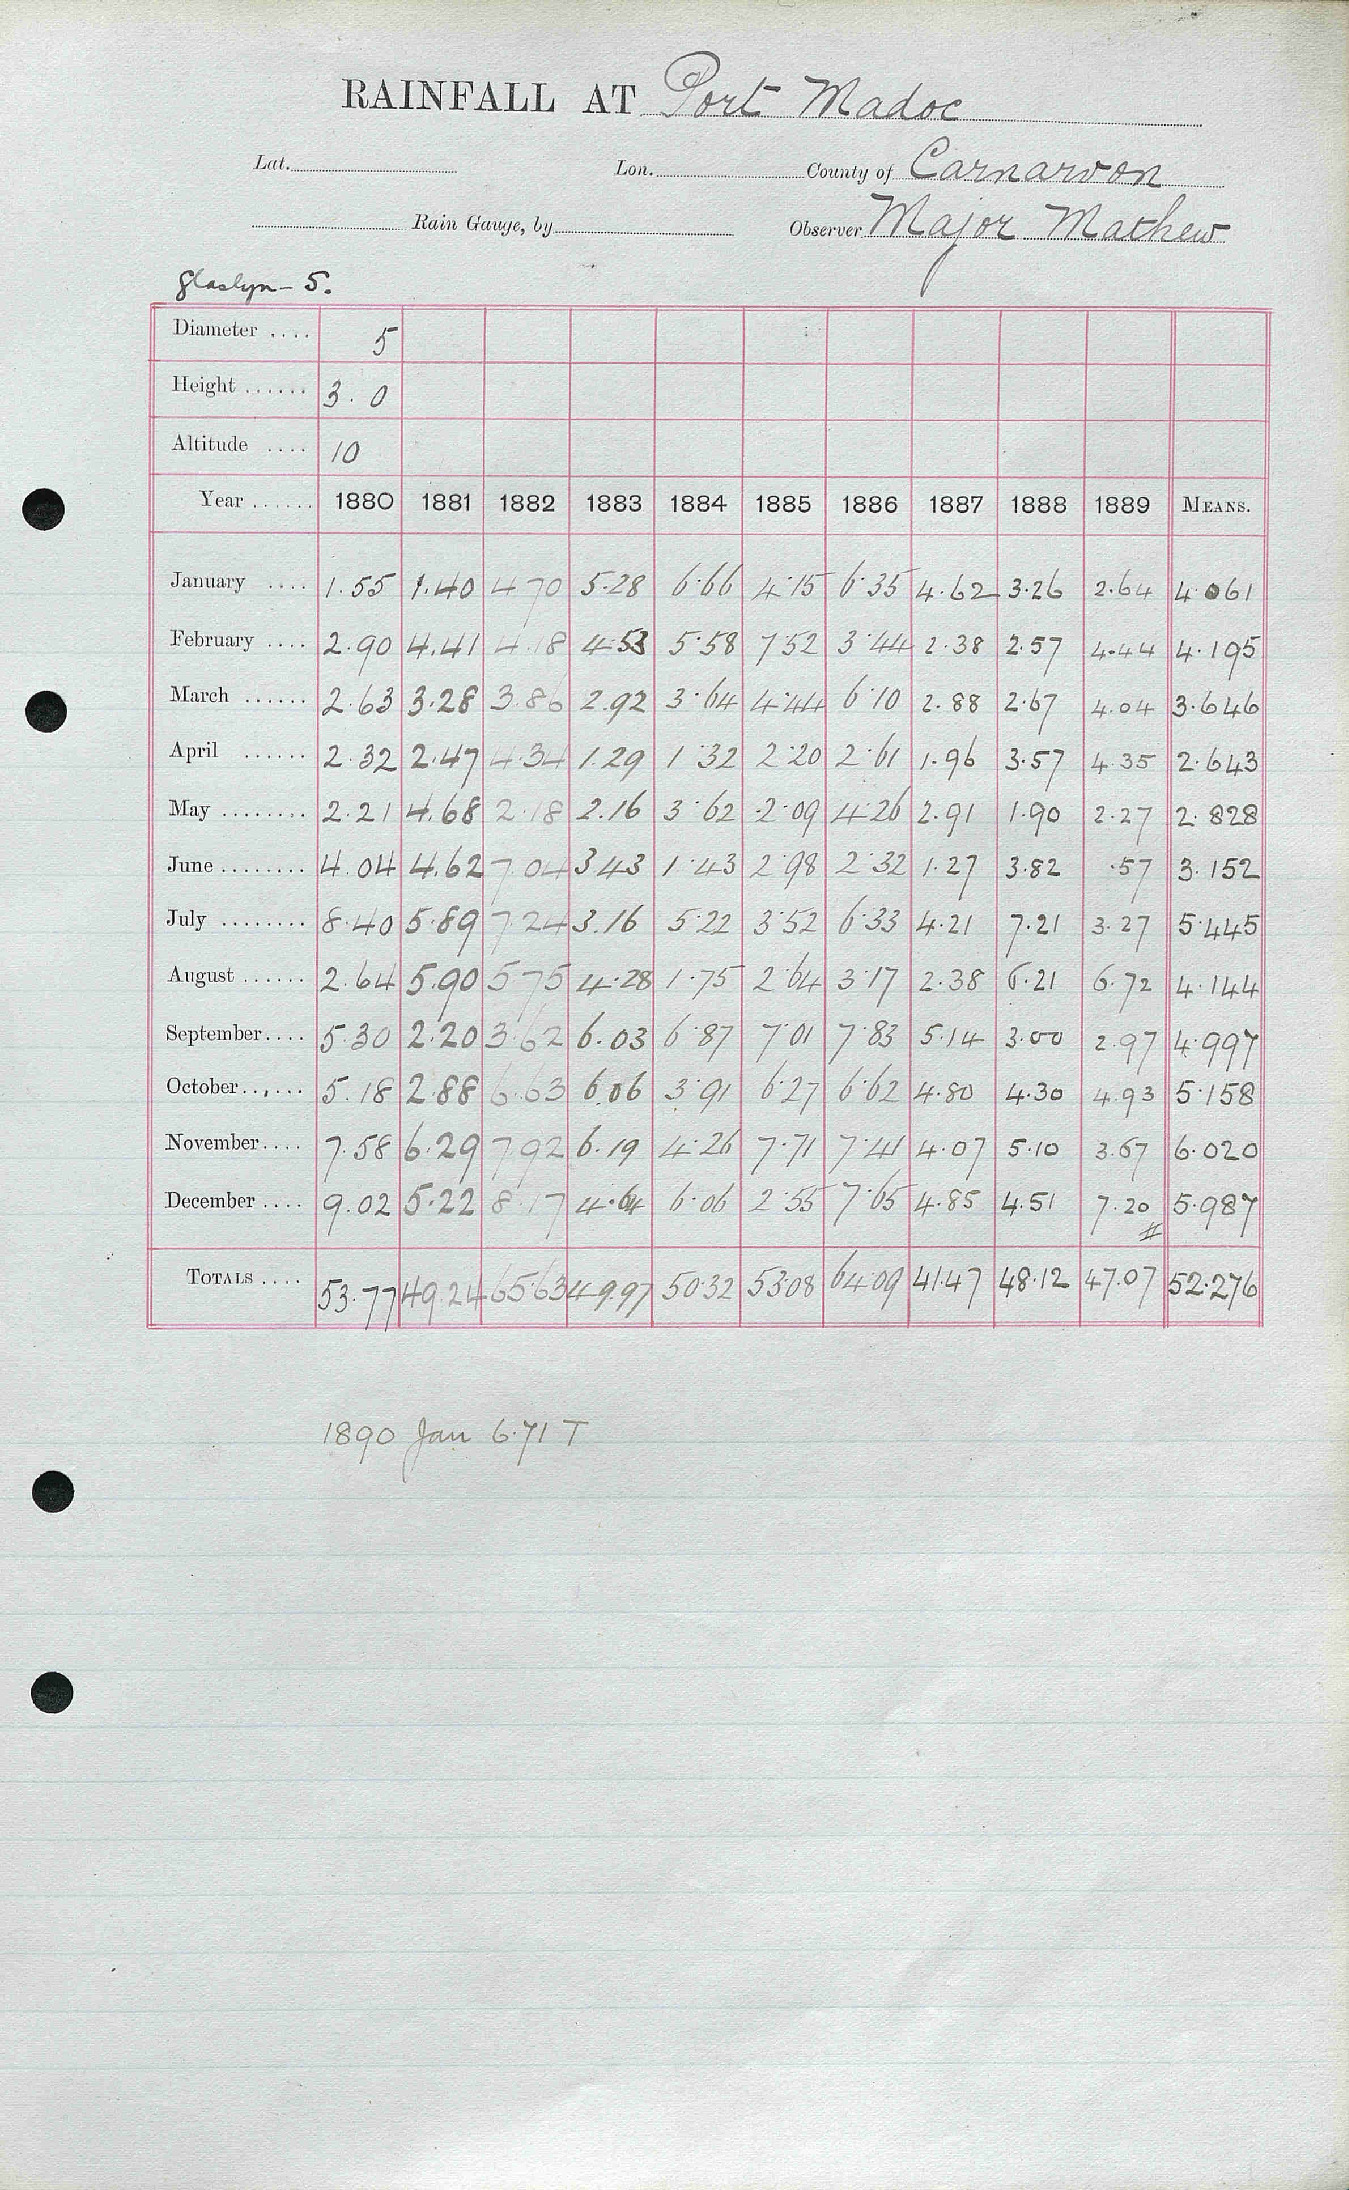 RAINFALL AT Port Madoc
Lat. Lon. County of Carnarvon
Rain Gauge, by Observer Major Mathew
Glaslyn - 5.
Diameter .... 5
Height ...... 3.0
Altitude .... 10
Year ...... 1880 1881 1882 1883 1884 1885 1886 1887 1888 1889 MEANS.
January .... 1.55 1.40 4.70 5.28 6.66 4.15 6.35 4.62 3.26 2.64 4.061
February .... 2.90 4.41 4.18 4.53 5.58 7.52 3.44 2.38 2.57 4.44 4.195
March ...... 2.63 3.28 3.86 2.92 3.64 4.44 6.10 2.88 2.67 4.04 3.646
April ...... 2.32 2.47 4.34 1.29 1.32 2.20 2.61 1.96 3.57 4.35 2.643
May ........ 2.21 4.68 2.18 2.16 3.62 2.09 4.26 2.91 1.90 2.27 2.828
June ........ 4.04 4.62 7.04 3.43 1.43 2.98 2.32 1.27 3.82 .57 3.152
July ........ 8.40 5.89 7.24 3.16 5.22 3.52 6.33 4.21 7.21 3.27 5.445
August ...... 2.64 5.90 5.75 4.28 1.75 2.64 3.17 2.38 6.21 6.72 4.144
September.... 5.30 2.20 3.62 6.03 6.87 7.01 7.83 5.14 3.00 2.97 4.997
October...... 5.18 2.88 6.63 6.06 3.91 6.27 6.62 4.80 4.30 4.93 5.158
November.... 7.58 6.29 7.92 6.19 4.26 7.71 7.41 4.07 5.10 3.67 6.020
December .... 9.02 5.22 8.17 4.64 6.06 2.55 7.65 4.85 4.51 7.20 5.987
TOTALS .... 53.77 49.24 65.63 49.97 50.32 53.08 64.09 41.47 48.12 47.07 52.276
1890 Jan 6.71 T